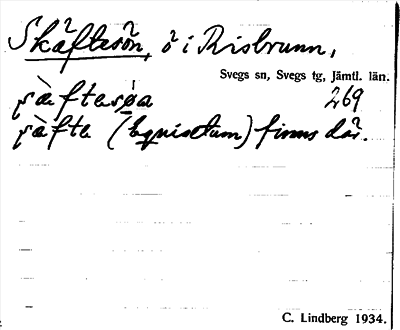 Skäftesön, ö i Risbrunn,
Svegs sn, Svegs tg, Jämtl. län.
269
(Equisetum) finns där.
C. Lindberg 1934.